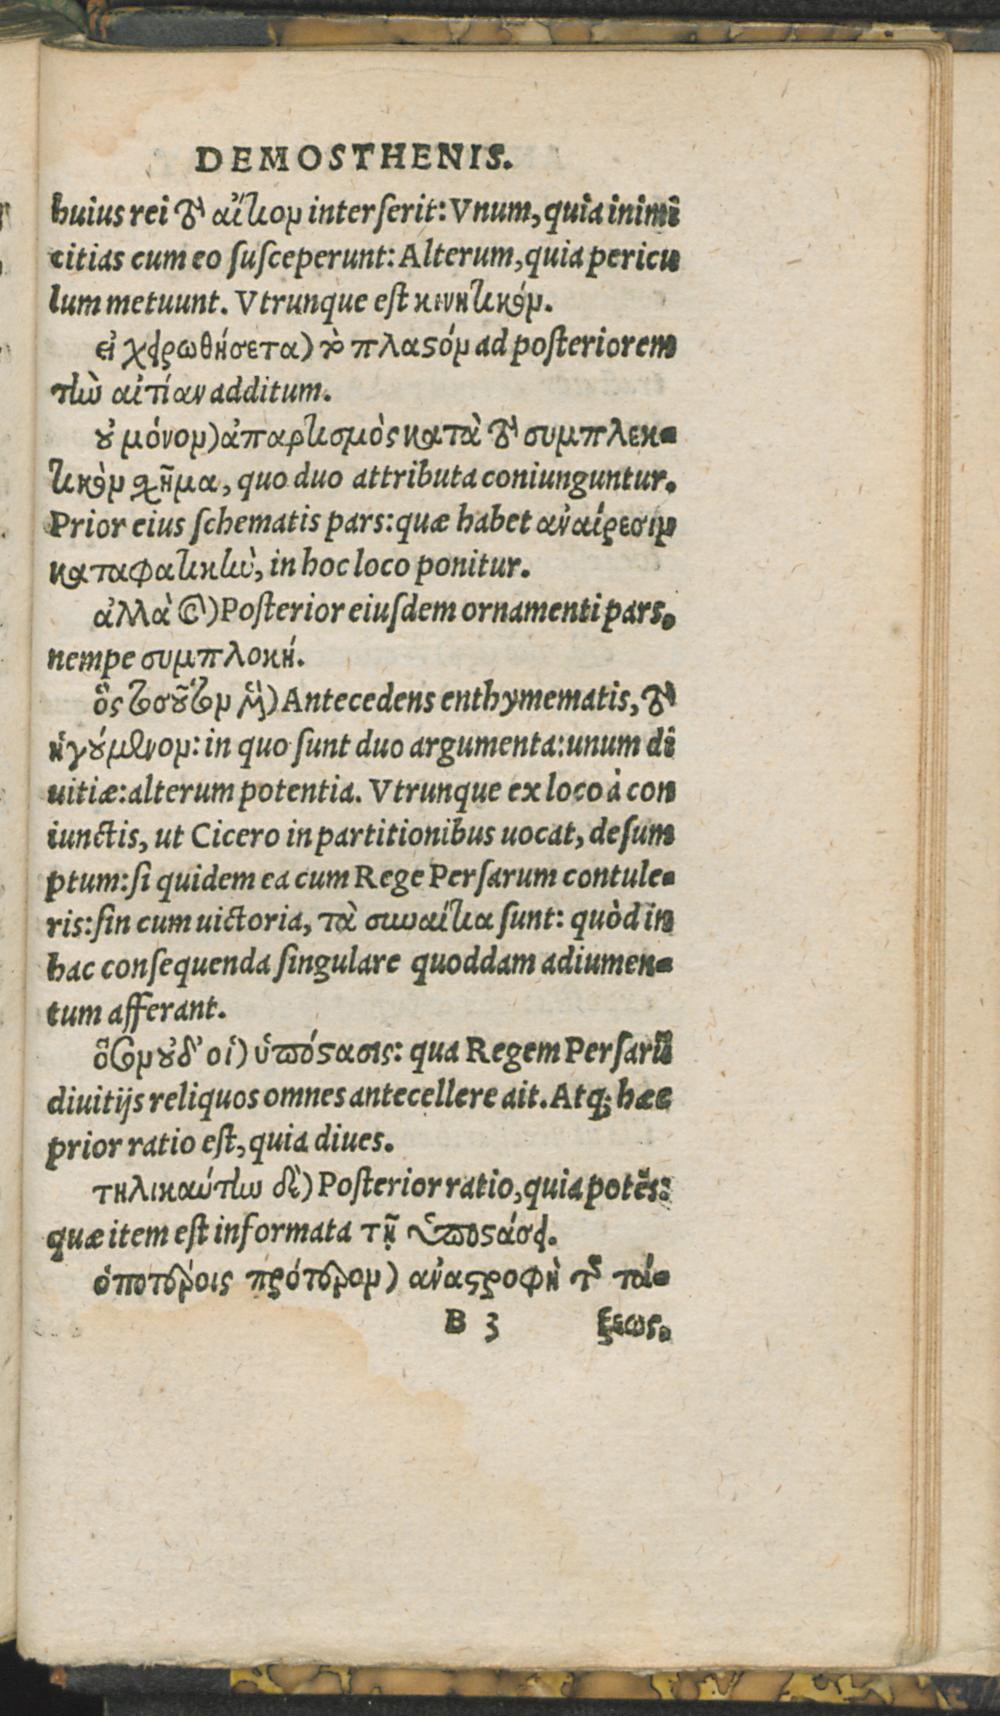 DEMOSTHENIS.
huius rei τὸ αἴτιον interserit: Vnum, quia inimi
citias cum eo susceperunt: Alterum, quia pericu
lum metuunt. Vtrunque est κινητικόν.
εἰ χειρωθήσεται) τὸ πλαστόν ad posteriorem
τὴν αἰτίαν additum.
οὐ μόνον) ἀπαρτισμὸς κατὰ τὸ συμπλεκ-
τικὸν σχῆμα, quo duo attributa coniunguntur.
Prior eius schematis pars: quæ habet ἀναίρεσιν
καταφατικὴν, in hoc loco ponitur.
ἀλλὰ καὶ) Posterior eiusdem ornamenti pars,
nempe συμπλοκή.
ὃς τοσοῦτον) Antecedens enthymematis, τὸ
ἡγούμενον: in quo sunt duo argumenta: unum di
uitiæ: alterum potentia. Vtrunque ex loco à con
iunctis, ut Cicero in partitionibus uocat, desum
ptum: si quidem ea cum Rege Persarum contule-
ris: sin cum uictoria, τὰ συναίτια sunt: quòd in
hac consequenda singulare quoddam adiumen-
tum afferant.
ὅσον οὐδ' οἱ) ὑπόστασις: qua Regem Persarū
diuitijs reliquos omnes antecellere ait. Atq; hæc
prior ratio est, quia diues.
τηλικαύτην δὲ) Posterior ratio, quia potēs:
quæ item est informata τῇ ὑποστάσει.
ὁποτέροις πρότερον) ἀναστροφὴ τῆς τά-
B 3 ξεως.